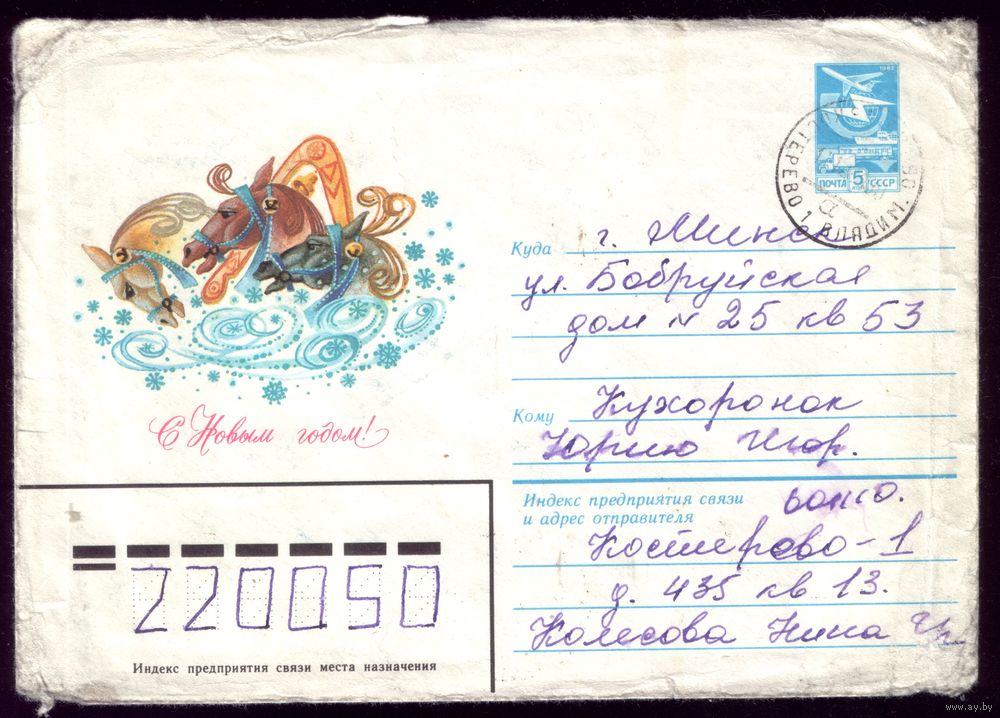 1982
ПОЧТА 5 СССР
КОСТЕРЕВО 1 ВЛАДИМ. ОБ
С Новым годом!
Куда г. Минск
ул. Бобруйская
дом № 25 кв 53
Кому Кухоронок
Юрию Игор.
Индекс предприятия связи
и адрес отправителя
Костерово-1
д. 435 кв 13.
Колесова Нина
220050
Индекс предприятия связи места назначения
www.ay.by